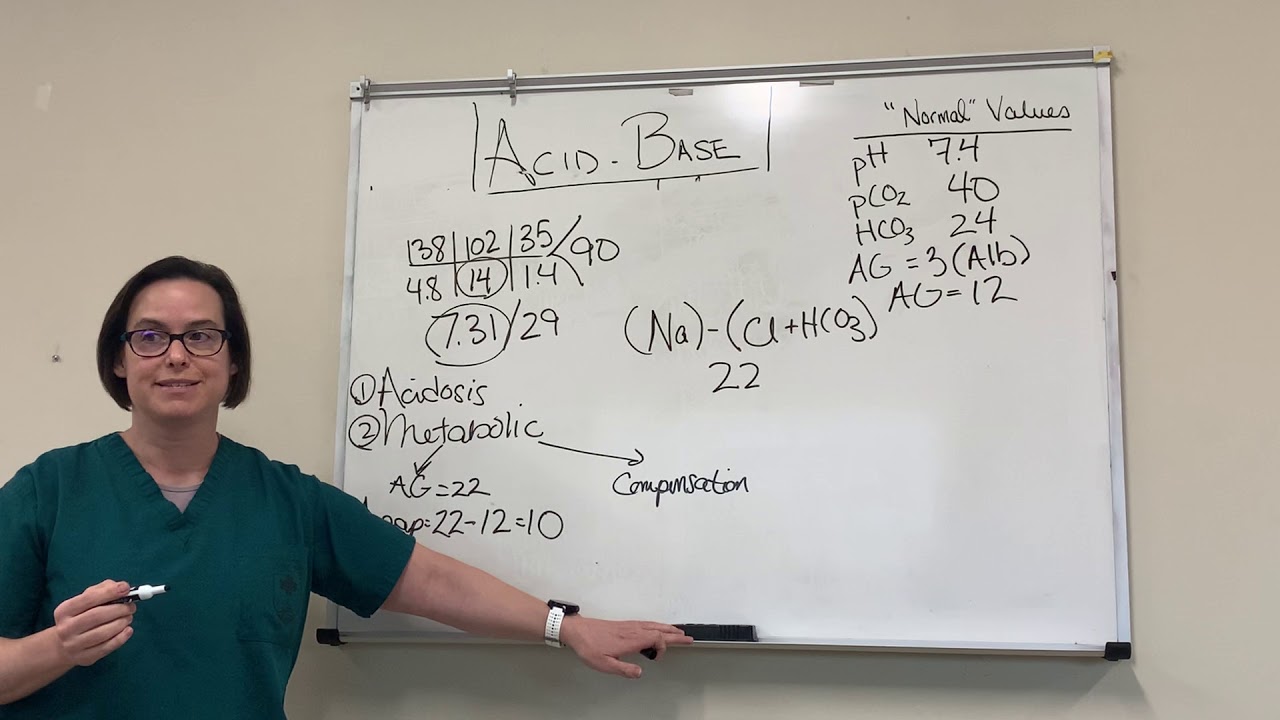 ACID-BASE
"Normal" Values
pH 7.4
pCO2 40
HCO3 24
AG = 3(Alb)
AG = 12
138 | 102 | 35 / 90
4.8 | 14 | 1.4 \
7.31 / 29
(Na) - (Cl + HCO3)
22
① Acidosis
② Metabolic
AG = 22
Compensation
gap = 22 - 12 = 10